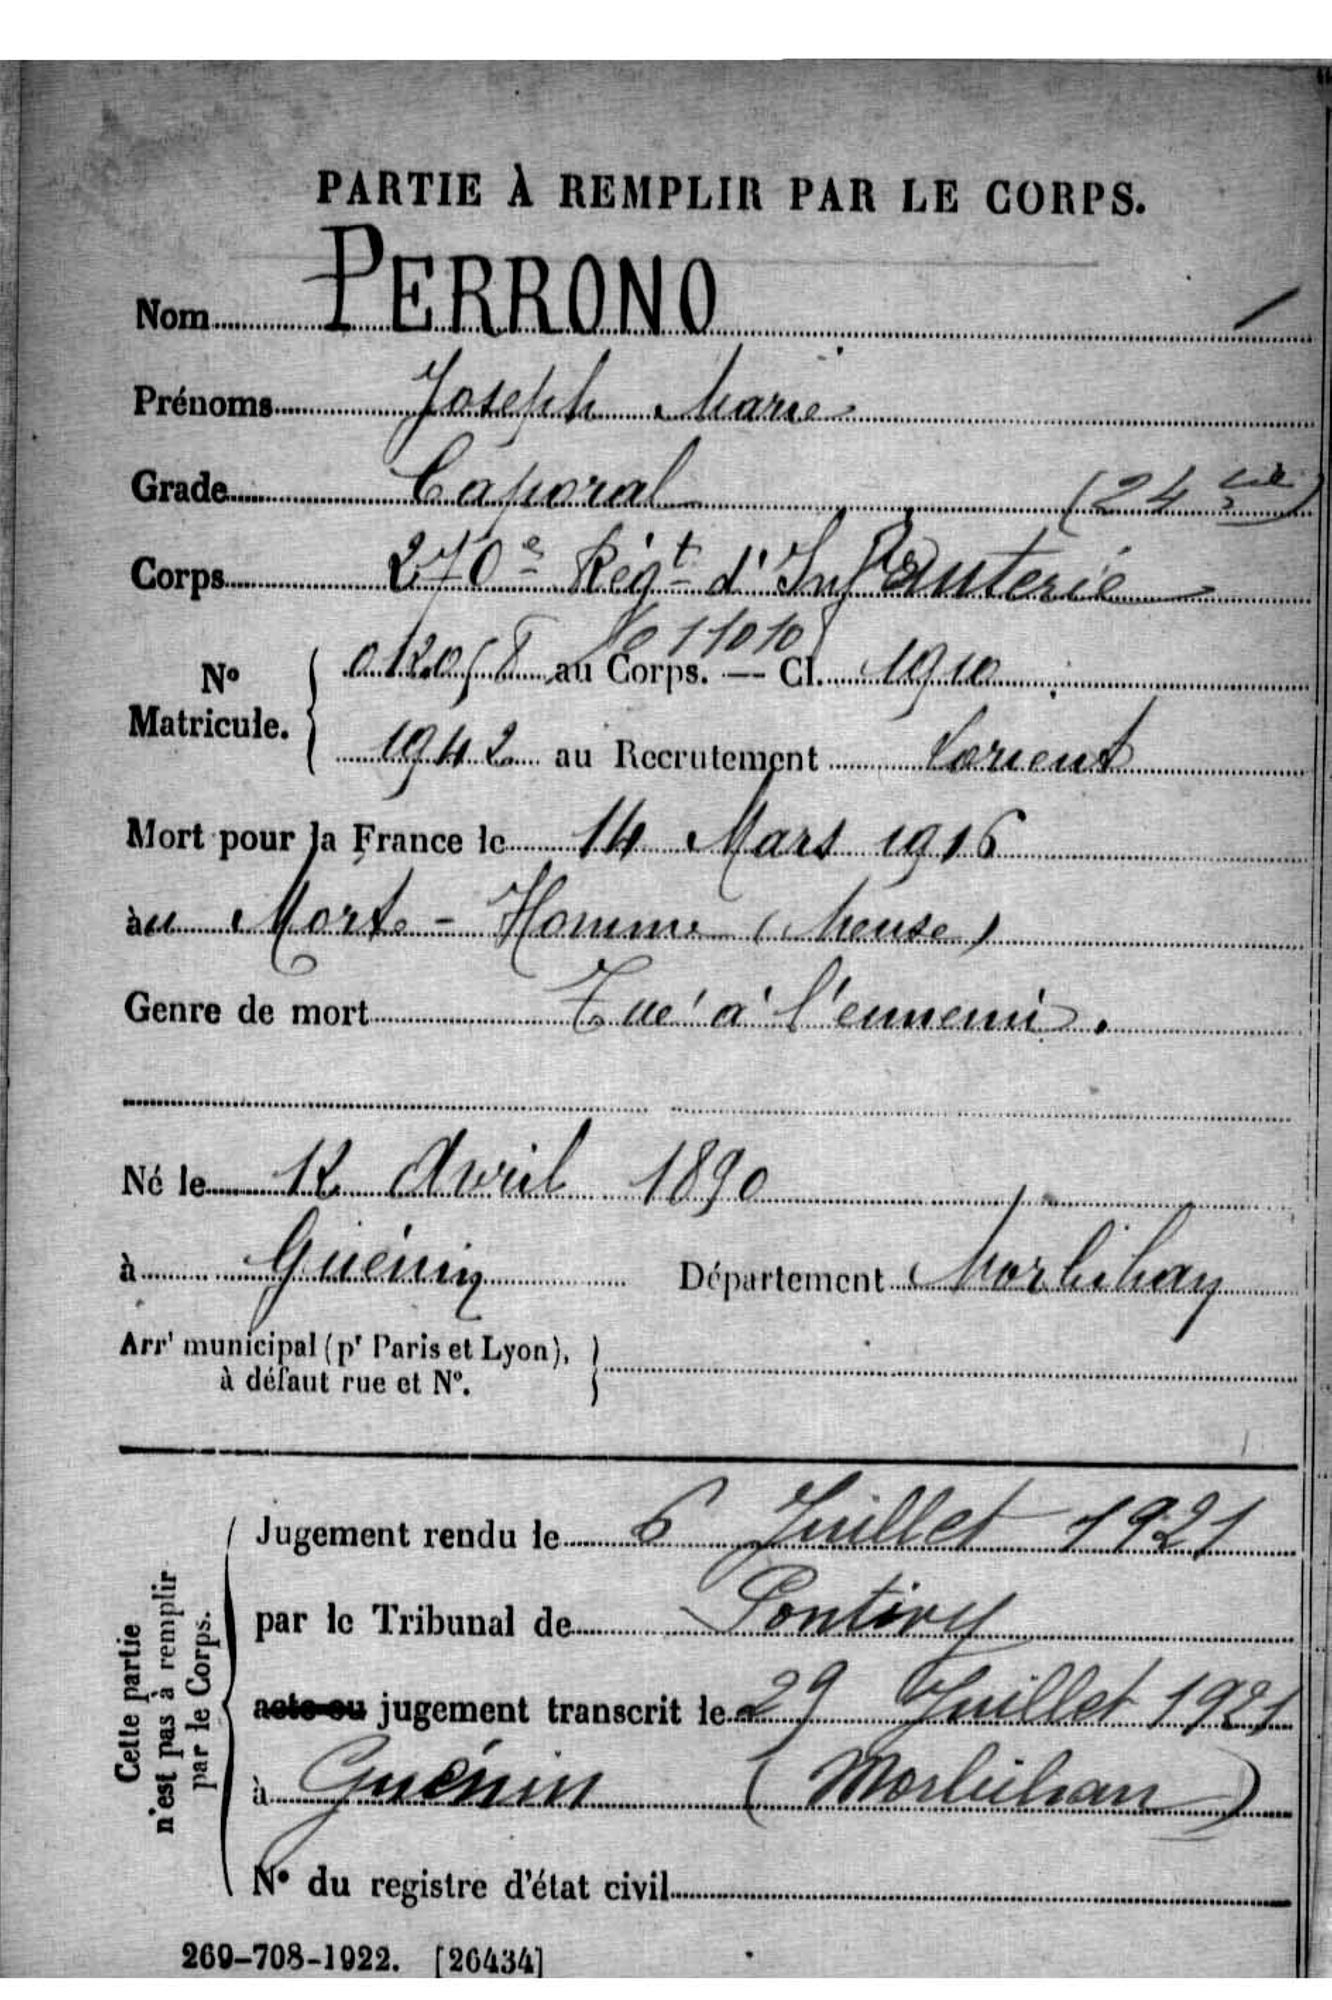 PARTIE À REMPLIR PAR LE CORPS.
Nom PERRONO
Prénoms Joseph Marie
Grade Caporal (24 Cie)
Corps 270e Régt d'Infanterie
No 11010
No Matricule. 012058 au Corps. — Cl. 1910
1942 au Recrutement Lorient
Mort pour la France le 14 Mars 1916
au Mort-Homme (Meuse)
Genre de mort Tué à l'ennemi.
Né le 12 Avril 1890
à Guénin Département Morbihan
Arrt municipal (pr Paris et Lyon),
à défaut rue et No.
Cette partie
n'est pas à remplir
par le Corps.
Jugement rendu le 6 Juillet 1921
par le Tribunal de Pontivy
acte ou jugement transcrit le 29 Juillet 1921
à Guénin (Morbihan)
No du registre d'état civil
269-708-1922. [26434]